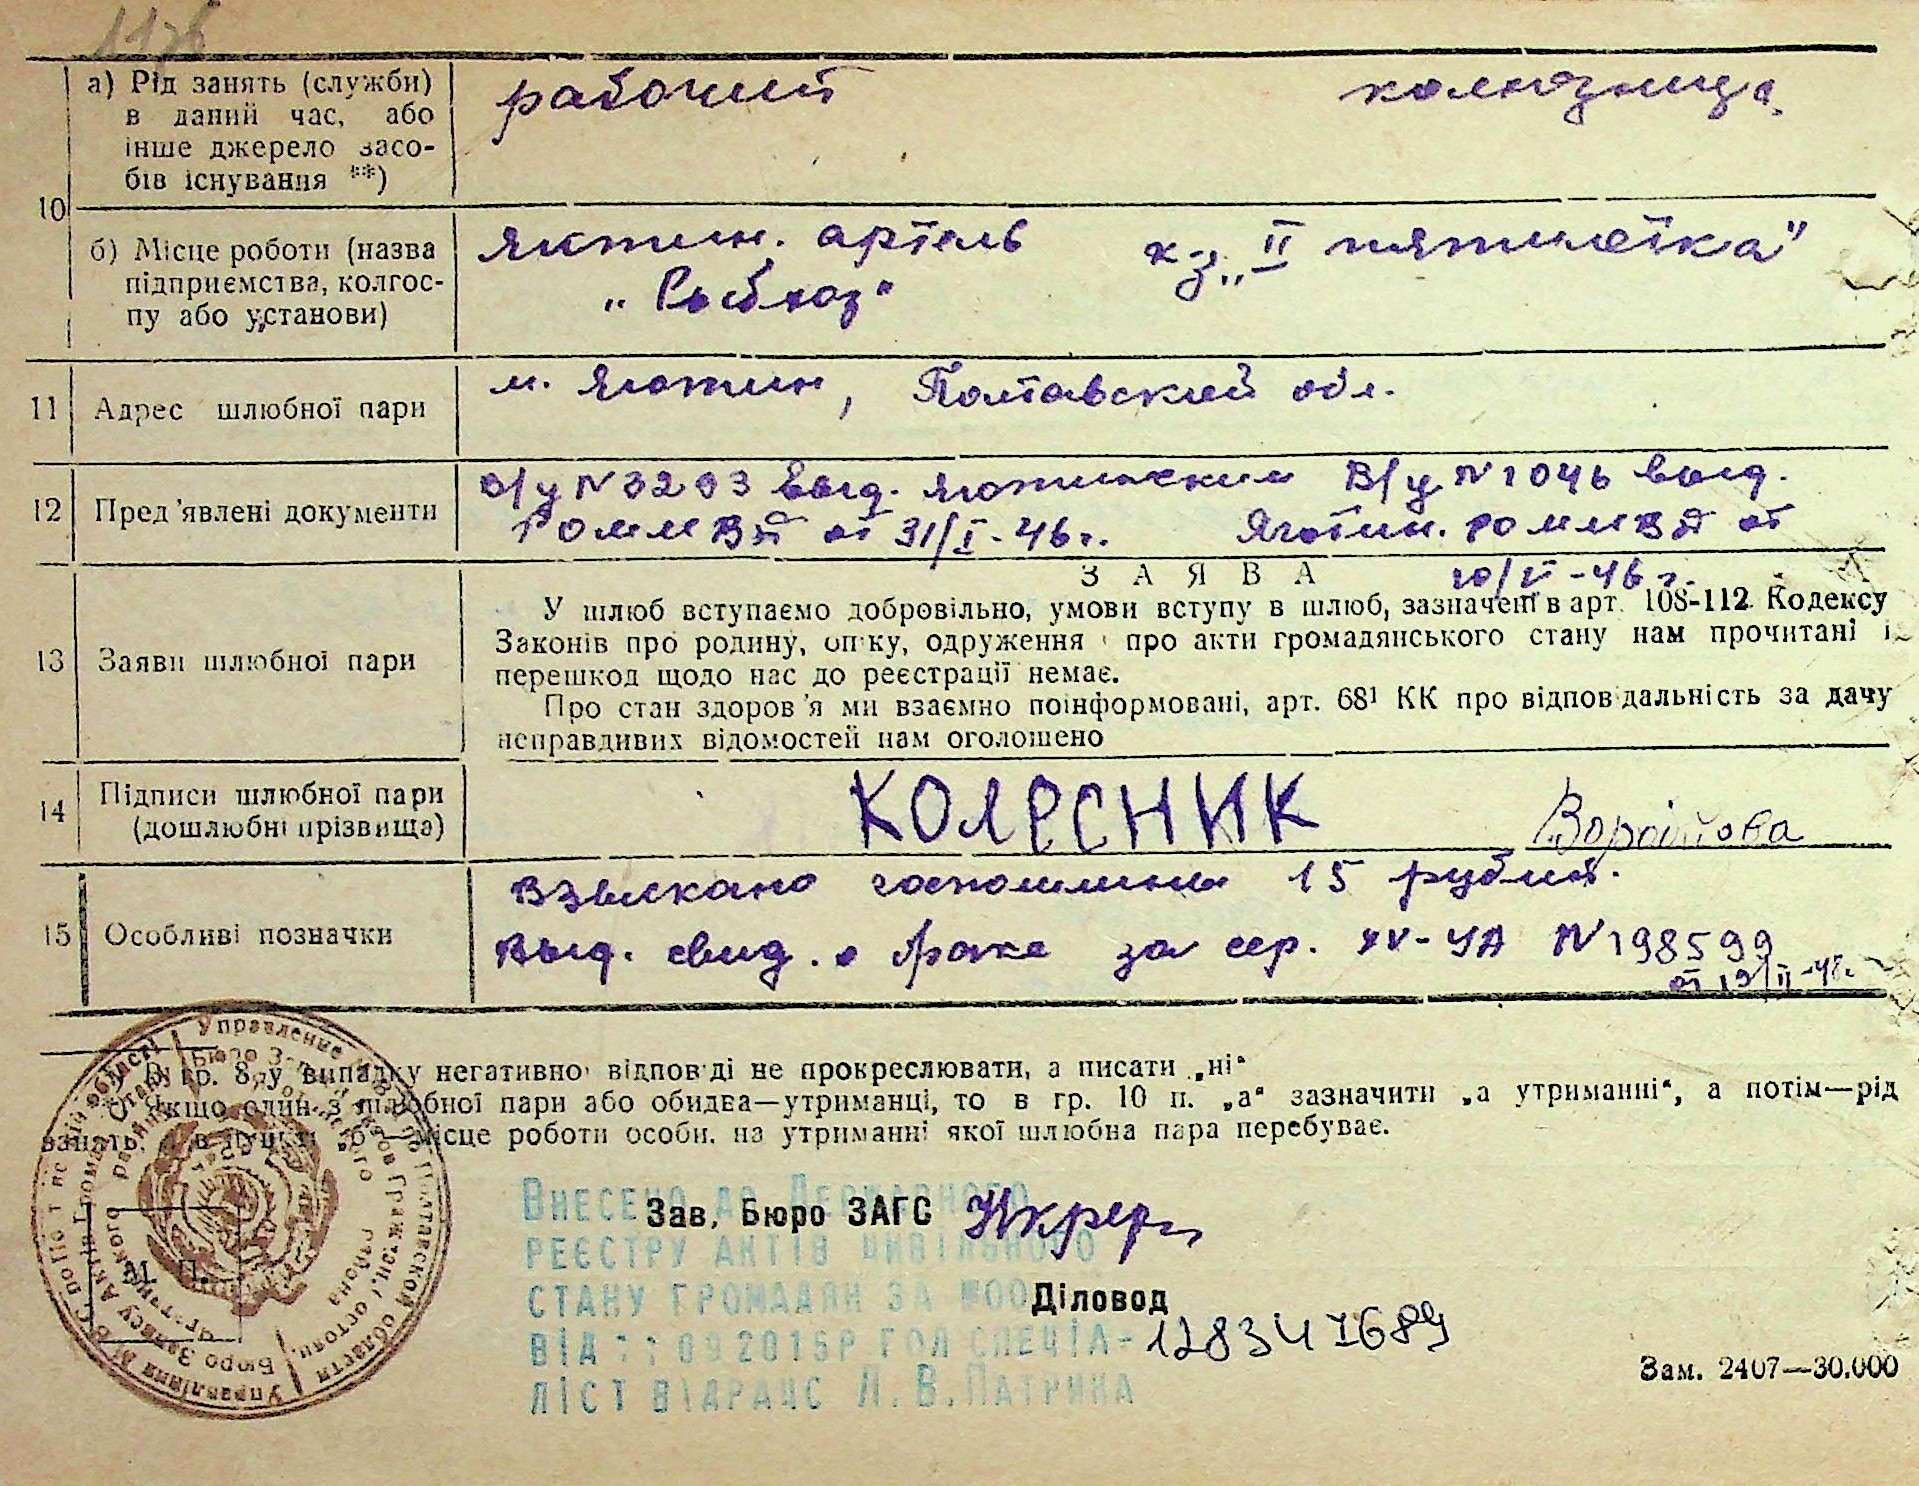 10
а) Рід занять (служби)
в даний час, або
інше джерело засо-
бів існування **)
рабочий
колхозница
б) Місце роботи (назва
підприємства, колгос-
пу або установи)
артель
"Рыбхоз"
к-з „II пятилетка"
11 Адрес шлюбної пари
м. Яготин, Полтавский обл.
12 Пред'явлені документи
В/у N 1046 выд.
РОМ МВД от 31/I-46г.
Яготин. РО М МВД от
10/V-46 г.
13 Заяви шлюбної пари
ЗАЯВА
У шлюб вступаємо добровільно, умови вступу в шлюб, зазначені в арт. 108-112 Кодексу
Законів про родину, опіку, одруження і про акти громадянського стану нам прочитані і
перешкод щодо нас до реєстрації немає.
Про стан здоров'я ми взаємно поінформовані, арт. 68¹ КК про відповідальність за дачу
неправдивих відомостей нам оголошено
14 Підписи шлюбної пари
(дошлюбні прізвища)
КОЛЕСНИК
15 Особливі позначки
Взыскано госпошлины 15 рублей.
Выд. свид. о браке за сер. N 198599
В гр. 8 у випадку негативної відповіді не прокреслювати, а писати „ні"
Якщо один з шлюбної пари або обидва—утриманці, то в гр. 10 п. „а" зазначити „а утриманні", а потім—рід
занять, а в пункті „б"—місце роботи особи, на утриманні якої шлюбна пара перебуває.
М. П.
Зав. Бюро ЗАГС
Діловод
Внесено до Державного
реєстру актів цивільного
стану громадян за №00
12834 1689
Л. В. Патрина
Зам. 2407—30.000